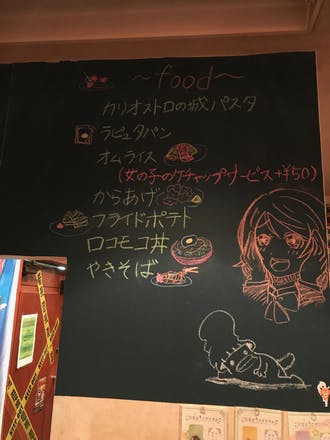 ～food～
カリオストロの城パスタ
ラピュタパン
オムライス
(女の子のケチャップサービス+¥50)
からあげ
フライドポテト
ロコモコ丼
やきそば